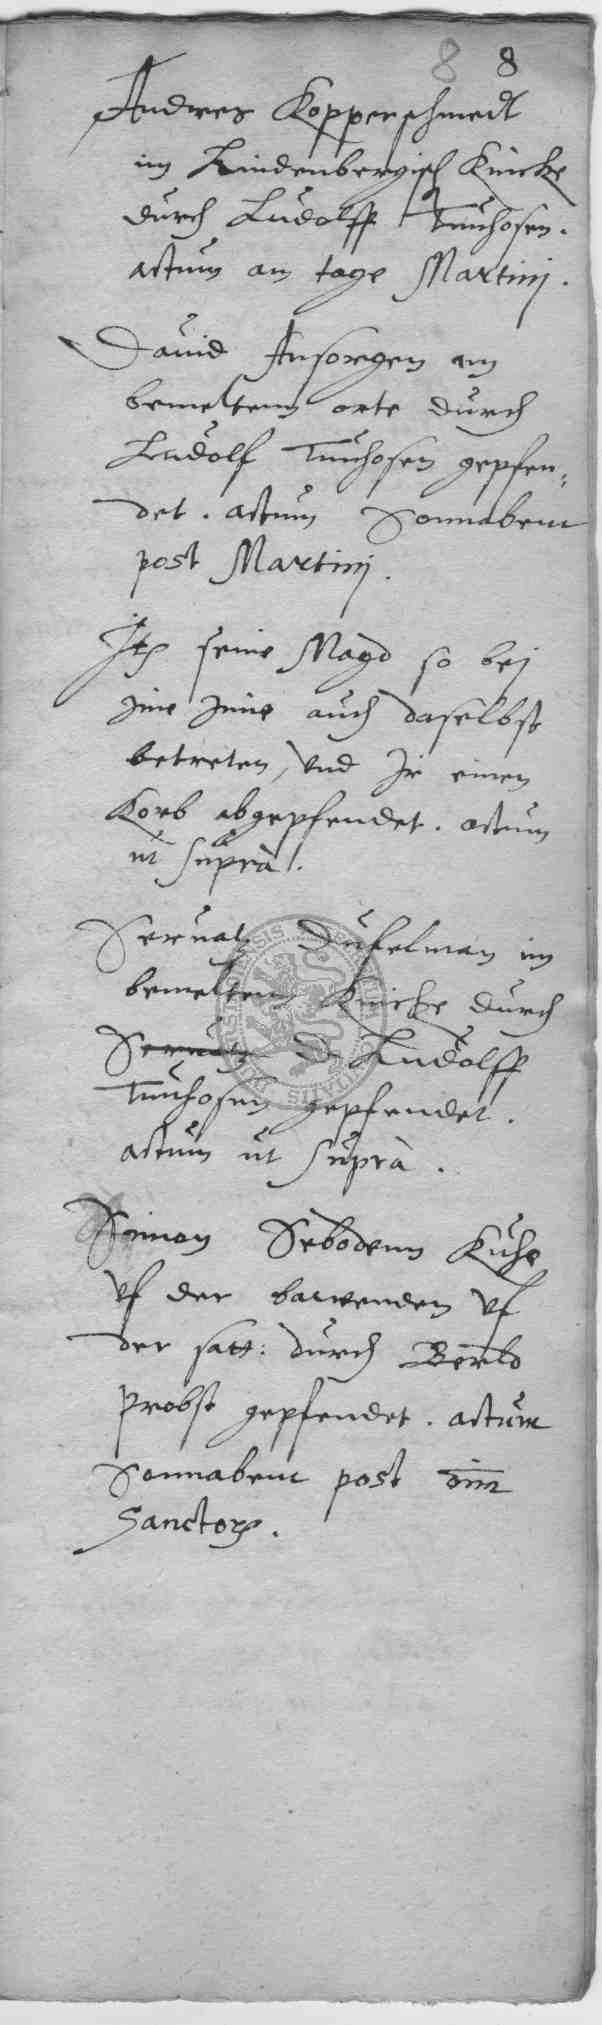 8 8
Andres Kopperschmedt
im Lindenbergisch Knicke
durch Ludolff Tunhosen.
actum am tage Martinj.
Dauid Ansorgen am
bemeltem orte durch
Ludolf Tunhosen gepfen„
det. actum Sonnabent
post Martinj.
Jtē seine Magd so bej
jme jnne auch daselbst
betreten, vnd Jr einen
Korb abgepfendet. actum
ut supra.
Seruatz Dufelman im
bemeltem Knicke durch
Seruatz D Ludolff
Tunhosen gepfendet.
actum ut supra.
Simon Sebodenn Kuhe
vf der barwenden vf
der satt: durch Berld
Probst gepfendet. actum
Sonnabent post oīm
Sanctoꝝ.